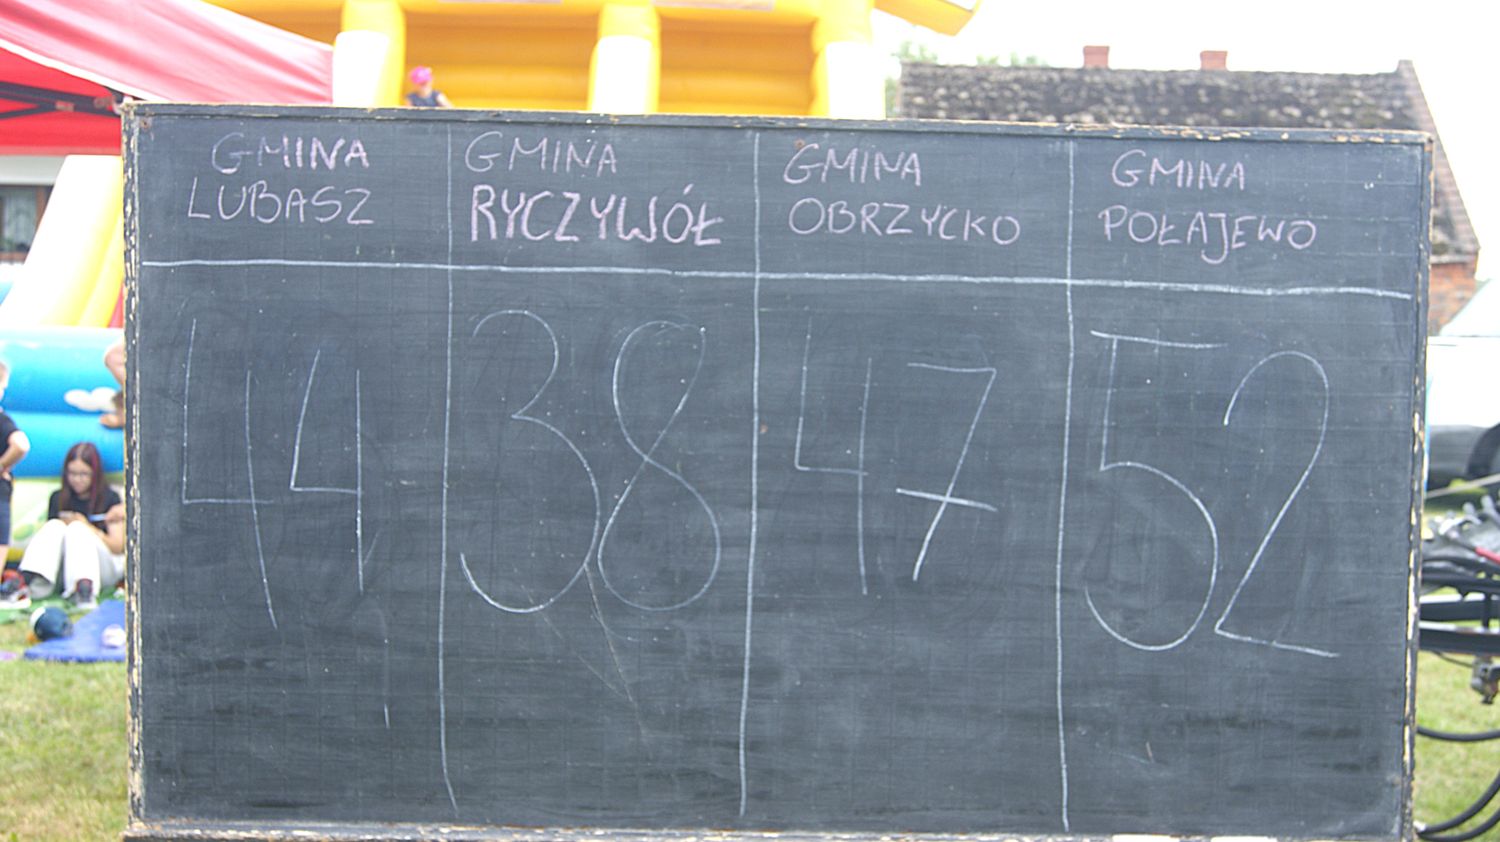 GMINA
LUBASZ
GMINA
RYCZYWÓŁ
GMINA
OBRZYCKO
GMINA
POŁAJEWO
44
38
47
52